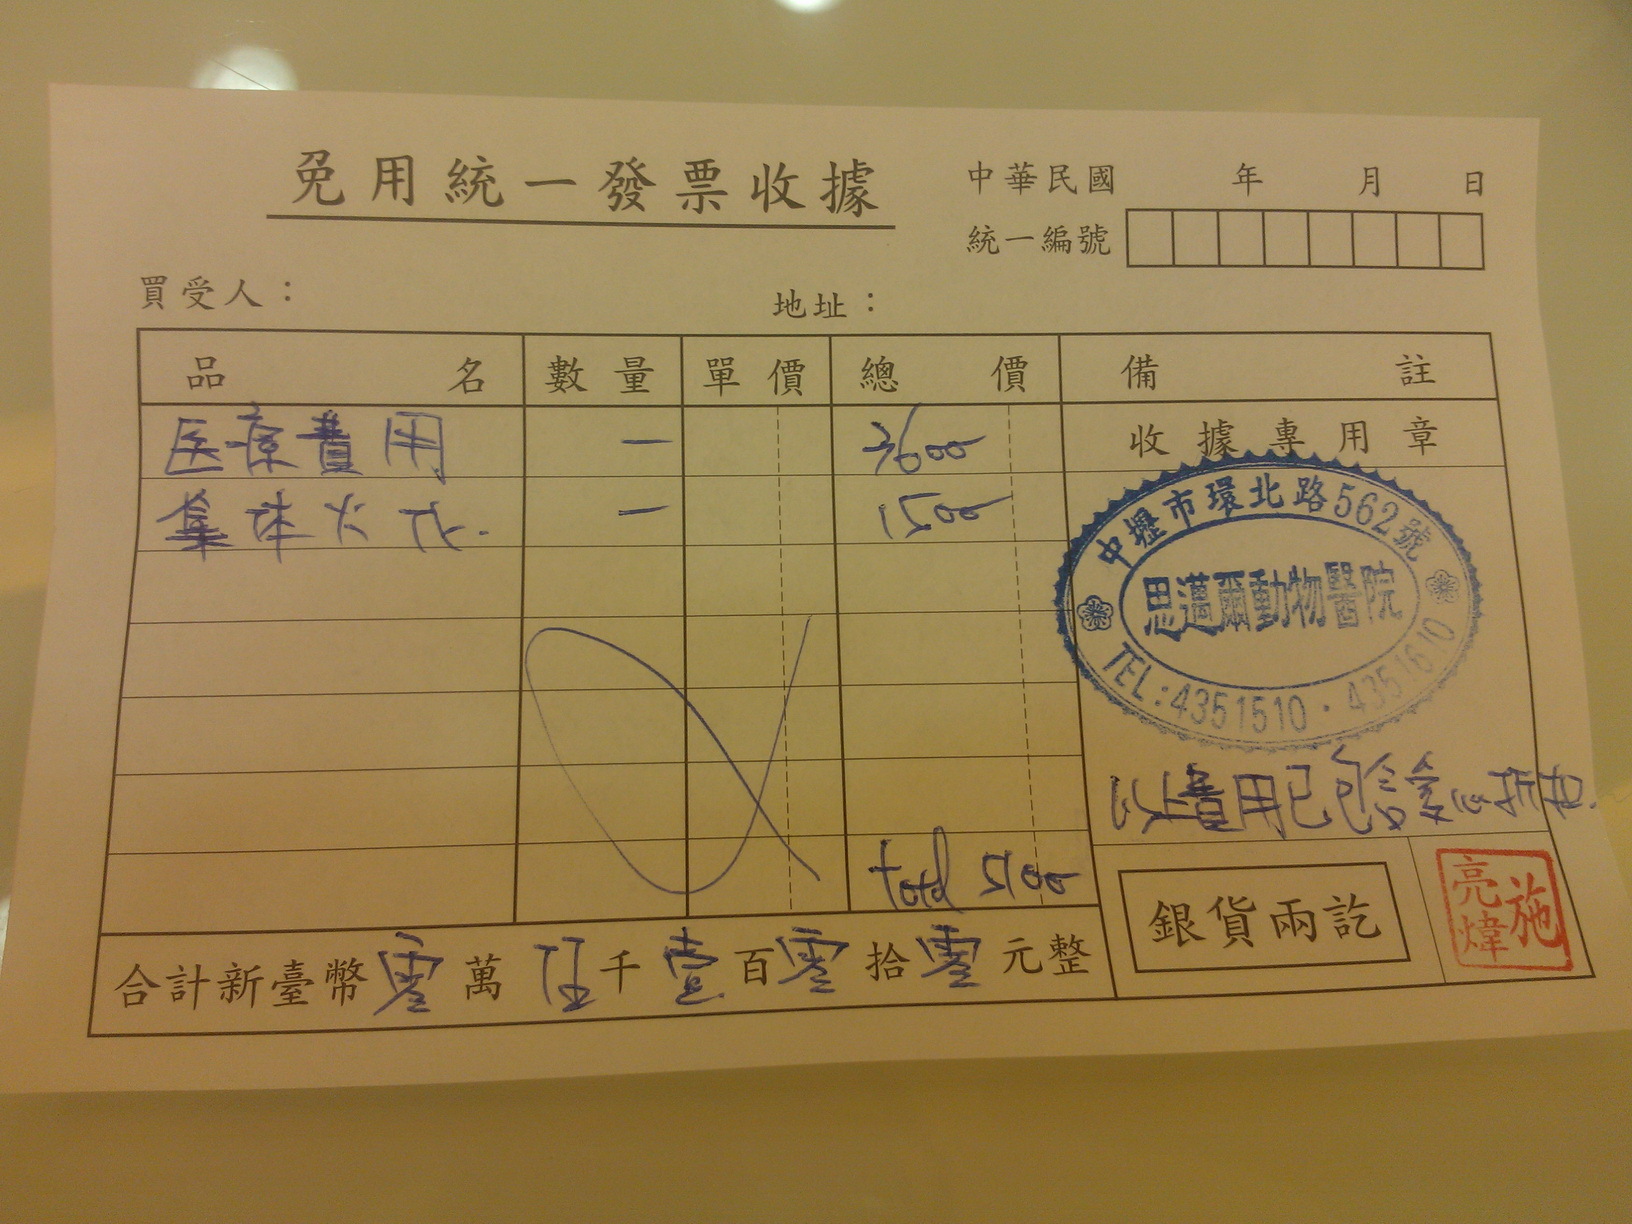 免用統一發票收據
中華民國 年 月 日
統一編號
買受人： 地址：
品名 數量 單價 總價 備註
医療費用 一 3600
集体火化. 一 1500
收據專用章
中壢市環北路562號
思邁爾動物醫院
TEL:4351510·4351610
以上費用已包含愛心折扣.
total 5100
合計新臺幣零萬伍千壹百零拾零元整
銀貨兩訖
施亮煒